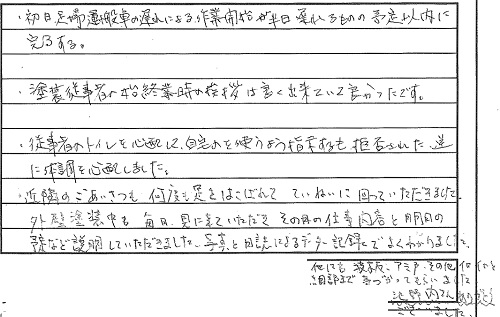 ・初日足場運搬車の遅れによる作業開始が半日遅れるものの予定以内に
完了する。
・塗装従事者の始終業時の挨拶は良く出来ていて良かったです。
・従事者のトイレを心配して、自宅のを使うよう指示するも拒否された、逆
に体調を心配しました。
・近隣のごあいさつも何度も足をはこばれて ていねいに回っていただきました。
外壁塗装中も毎日、見に来ていただき その日の仕事内容と明日の
予定など説明していただきました。写真と日誌によるデーター記録でよくわかりました。
他にも 波板、アミ戸、その他 何かと
細部まで 気づかってもらいました
ありがとう
ございました。